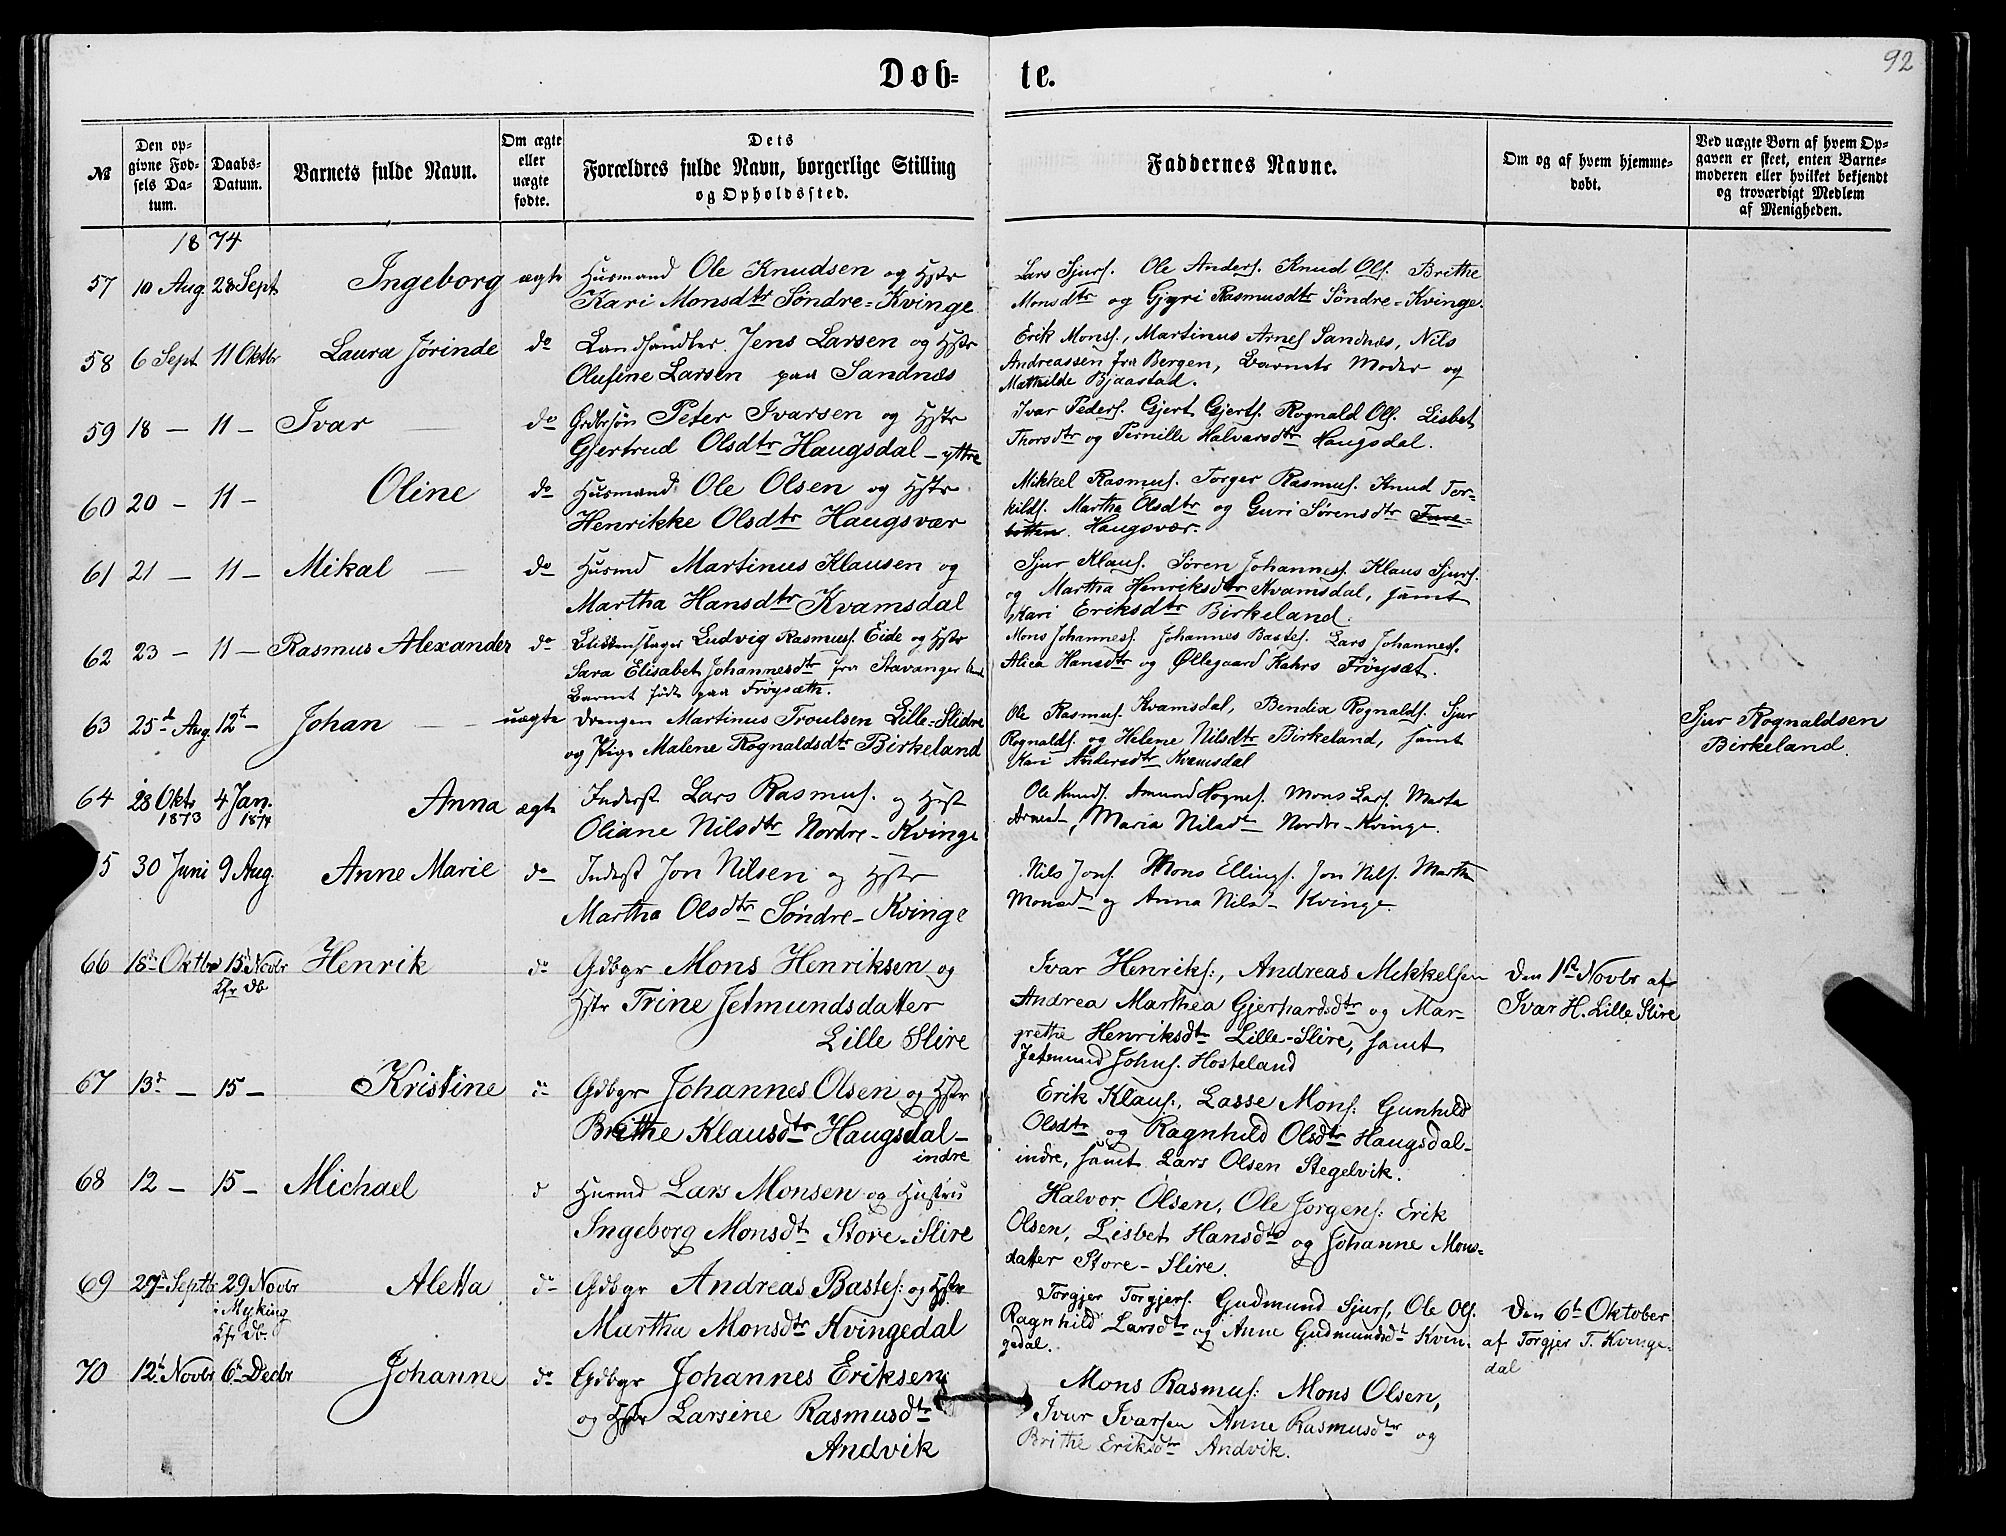 92
Døb-
te.
№
Den op-
givne Fød-
sels Da-
tum.
Daabs-
Datum.
Barnets fulde Navn.
Om ægte
eller
uægte
fødte.
Dets
Forældres fulde Navn, borgerlige Stilling
og Opholdssted.
Faddernes Navne.
Om og af hvem hjemme-
døbt.
Ved uægte Børn af hvem Op-
gaven er skeet, enten Barne-
moderen eller hvilket bekjendt
og troværdigt Medlem
af Menigheden.
1874
57 10 Aug. 28 Sept. Ingeborg ægte Husmand Ole Knudsen og Hstr
Kari Monsdtr Søndre-Kvinge
Lars Sjurs. Ole Anders. Knud Ols. Brithe
Monsdtr og Gjyri Rasmusdtr Søndre-Kvinge.
58 6 Sept 11 Oktbr Laura Jørinde do Landhandler Jens Larsen og Hstr
Olufine Larsen paa Sandnæs
Erik Mons., Martinus Arnes Sandnæs, Nils
Andreassen fra Bergen, Barnets Moder og
Mathilde Bjaastad.
59 18 — 11 — Ivar — do Grdbrsøn Peter Ivarsen og Hstr
Gjertrud Olsdtr Haugsdal - yttre
Ivar Peders. Gjert Gjerts. Rognald Ols. Lisbet
Thorsdtr og Pernille Halvarsdtr Haugsdal.
60 20 — 11 — Oline do Husmand Ole Olsen og Hstr
Henrikke Olsdtr Haugsvær
Mikkel Rasmus. Torger Rasmus. Knud Tor-
kilds. Martha Olsdtr og Guri Sørensdtr
Haugsvær.
61 21 — 11 — Mikal — do Husmd Martinus Klausen og
Martha Hansdtr Kvamsdal
Sjur Klaus. Søren Johannes. Klaus Sjurs.
og Martha Henriksdtr Kvamsdal, samt
Kari Eriksdtr Birkeland.
62 23 — 11 — Rasmus Alexander do Blikkenslager Ludvig Rasmus. Eide og Hstr
Sara Elisabet Johannesdtr fra Stavanger
Barnet født paa Frøysæth.
Mons Johannes. Johannes Bastes. Lars Johannes.
Alica Hansdtr og Øllegaard Kahrs Frøysæt.
63 25d Aug 12t — Johan — uægte Drengen Martinus Troulsen Lille-Slidre
og Pige Malene Rognaldsdtr Birkeland
Ole Rasmus. Kvamsdal, Bendix Rognalds. Sjur
Rognalds. og Helene Nilsdtr Birkeland, samt
Kari Andersdtr Kvamsdal
Sjur Rognaldsen
Birkeland.
64 28 Oktr 4 Jan. Anna ægte Inderst Lars Rasmus. og Hust
1873 1874
Oliane Nilsdtr Nordre-Kvinge
Ole Knuds. Amund Hognes. Mons Lars. Marta
Arnesd, Maria Nilsdtr Nordre-Kvinge.
5 30 Juni 9 Aug. Anne Marie do Inderst Jon Nilsen og Hstr
Martha Olsdtr Søndre-Kvinge
Nils Jons. Mons Ellings. Jon Nils. Martha
Monsd og Anna Nilsd Kvinge.
66 18de Oktbr 15de Novbr Henrik do Gdbgr Mons Henriksen og
Kfr Db
Hstr Trine Jetmundsdatter
Lille Slire
Ivar Henriks:, Andreas Mikkelsen
Andrea Marthea Gjerhardsdtr og Mar-
grethe Henriksdtr Lille-Slire, samt
Jetmund Johns. Hosteland
Den 1ste Novbr af
Ivar H. Lille Slire
67 13d — 15 — Kristine do Gdbgr Johannes Olsen og Hstr
Brithe Klausdtr Haugsdal-
indre
Erik Klaus., Lasse Mons: Gunhild
Olsdtr og Ragnhild Olsdtr Haugsdal-
indre, samt Lars Olsen Stegelvik.
68 12 — 15 — Michael d Husmd Lars Monsen og Hustru
Ingeborg Monsdtr Store-Slire
Halvor Olsen, Ole Jorgens: Erik
Olsen, Lisbet Hansdtr og Johanne Mons-
datter Store-Slire.
69 27d Septbr 29 Novbr Aletta do Gdbgr Andreas Bastes: og Hstr
i Myking
Kfr Db.
Martha Monsdtr Kvingedal
Torgjer Torgjers. Gudmund Sjurs, Ole Ols.
Ragnhild Larsdtr og Anne Gudmundsdt Kvin-
gedal.
Den 6te Oktober
af Torgjer T. Kvinge-
dal
70 12te Novbr 6te Decbr Johanne do Gdbgr Johannes Eriksen
og Hstr Larsine Rasmusdtr
Andvik
Mons Rasmus: Mons Olsen,
Ivur Ivarsen Anne Rasmusdtr og
Brithe Eriksdtr Andvik.